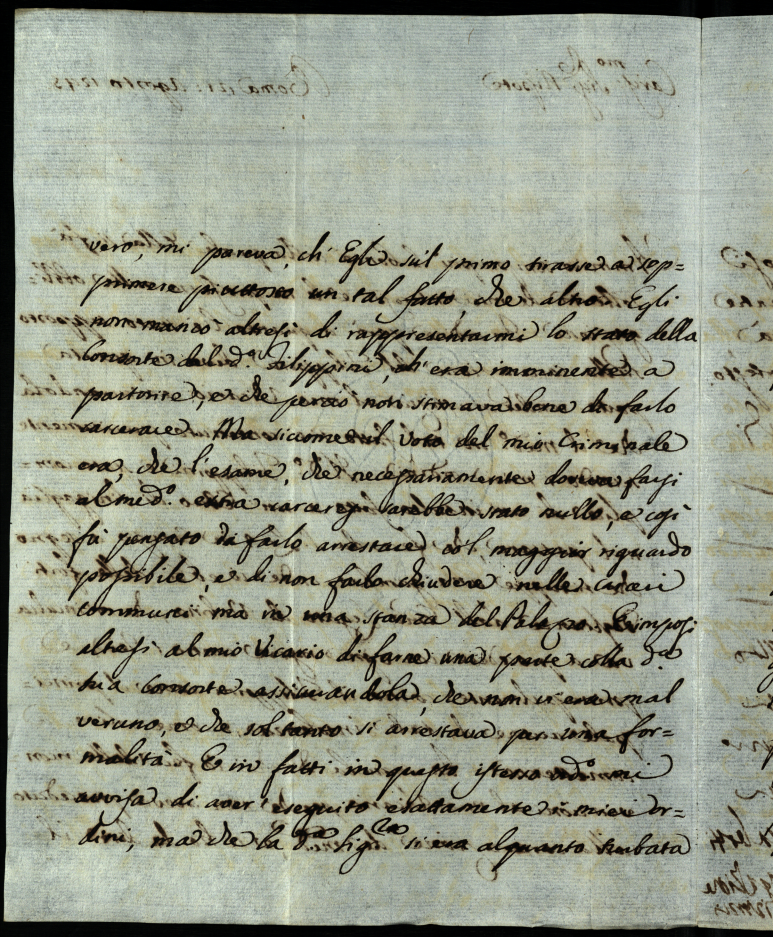 vero, mi pareva, ch' Egli sul primo tirasse a sop=
primere piuttosto un tal fatto, che altro. Egli
non mancò altresì di rappresentarmi lo stato della
Consorte del d.º Filippini, ch' era imminente a
partorire, e che perciò non stimava bene di farlo
carcerare. Ma siccome il Voto del mio Criminale
era, che l'esame, che necessariamente doveva farsi
al med.º extra carceres sarebbe stato nullo, e così
fù pensato di farlo arrestare col maggior riguardo
possibile, e di non farlo chiudere nelle carceri
communi, ma in una stanza del Palazzo. Imposi
altresì al mio Vicario di farne una parte colla d.ª
sua Consorte assicurandola, che non v'era mal
veruno, e che soltanto si arrestava per una for=
malità. E in fatti in questo istesso ord.º mi
avvisa di aver eseguito esattamente i miei or=
dini, ma che la d.ª Sig.ra si era alquanto turbata